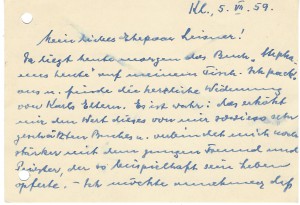 Kl., 5. VII. 59.
Mein liebes Ehepaar Leisner!
Da liegt heute morgen das Buch "Stepha-
nus heute" auf meinem Tisch. Ich packe
aus u. finde die herzliche Widmung
von Karls Eltern. Es ist wahr: das erhöht
mir den Wert dieses von mir sowieso sehr
geschätzten Buches u. verbindet mich noch
stärker mit dem jungen Freund und
Priester, der so beispielhaft sein Leben
opferte. – Ich möchte annehmen daß